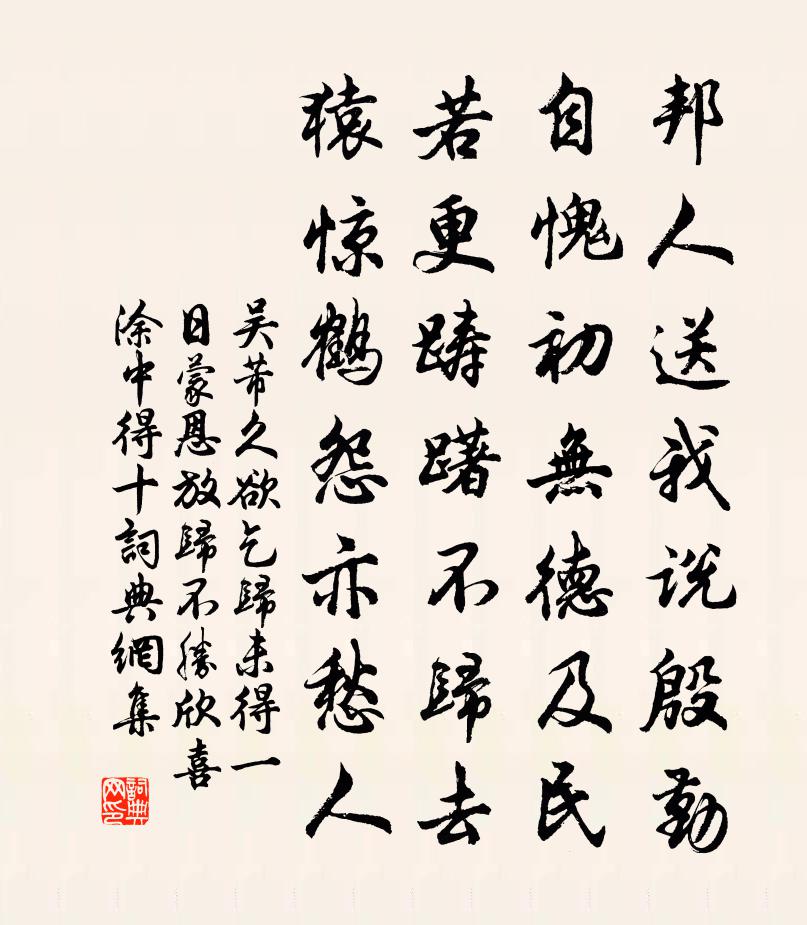 邦人送我说殷勤
自愧初無德及民
若更踌躇不歸去
猿惊鹤怨亦愁人
吴芾久欲乞歸未得一
日蒙恩放歸不勝欣喜
涂中得十詞典網集
詞典网印